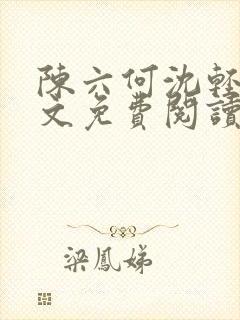 陳六何沈輕
文免費閱讀
梁鳳娣